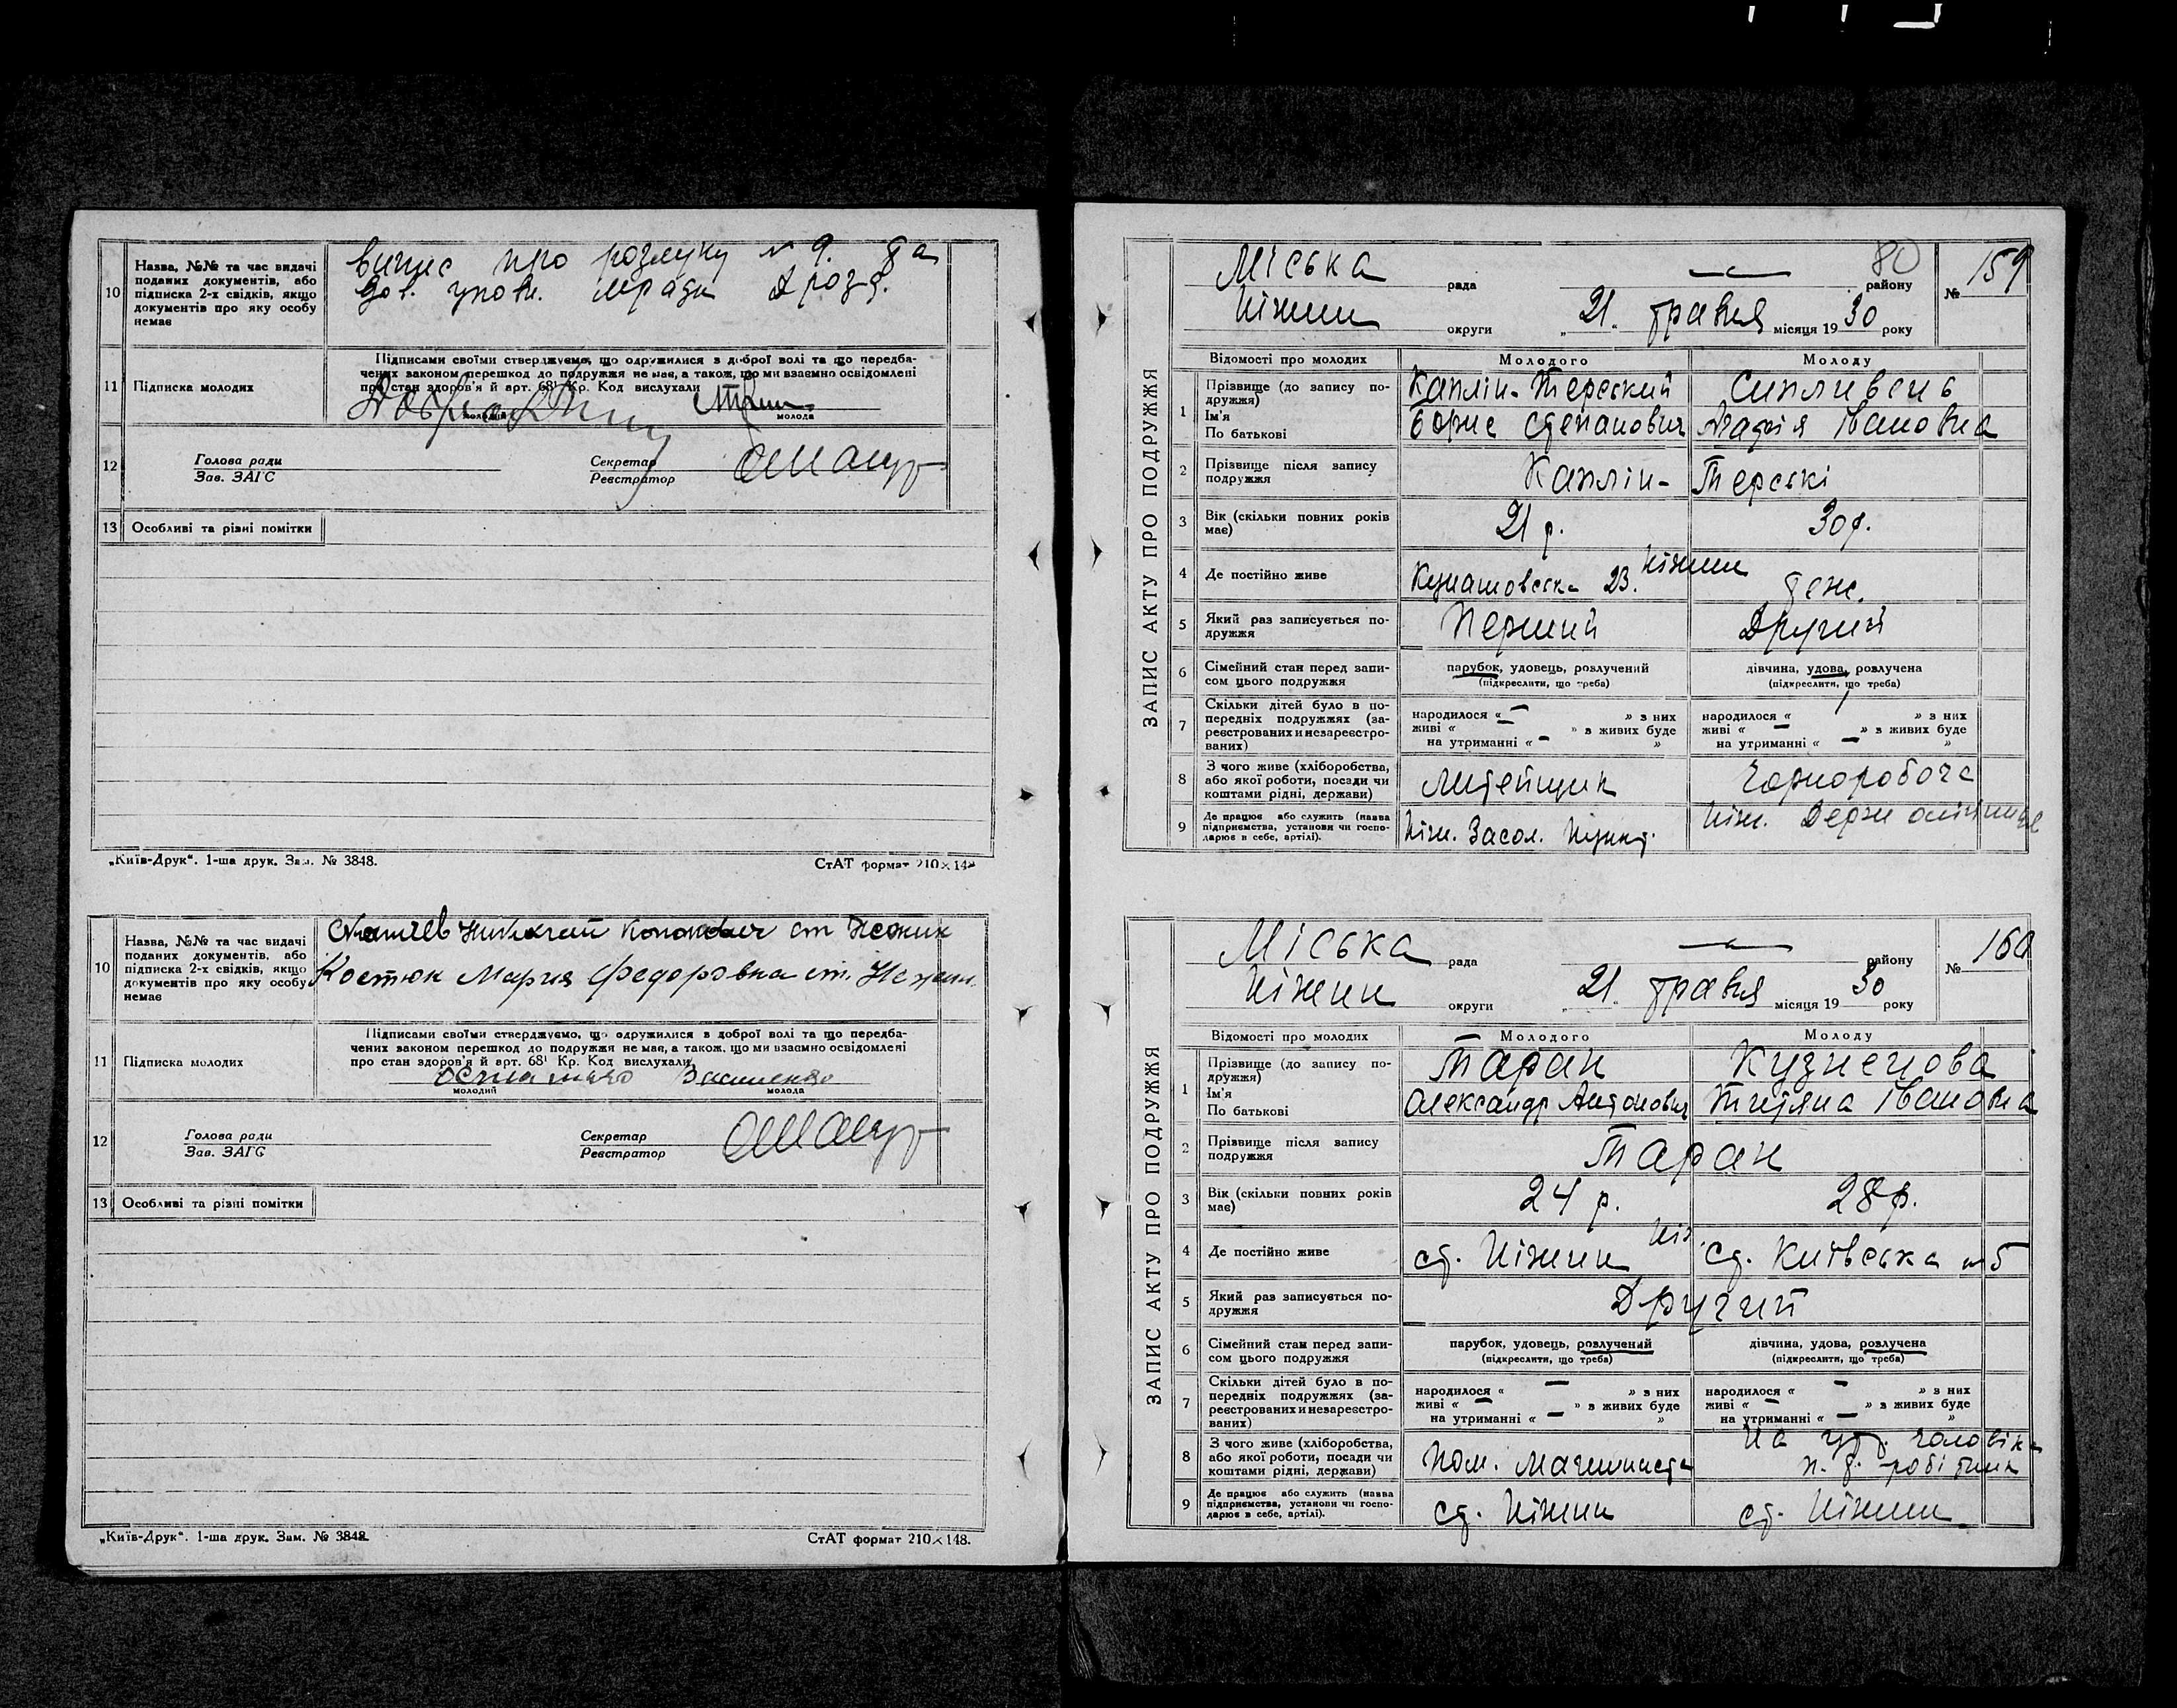 10 Назва, №№ та час видачі
поданих документів, або
підписка 2-х свідків, якщо
документів про яку особу
немає
випис про розлуку № 9. та
дов. упов. міради Дрозд.
11 Підписка молодих
Підписами своїми стверджуємо, що одружилися з доброї волі та що передба-
чених законом перешкод до подружжя не має, а також, що ми взаємно освідомлені
про стан здоров'я й арт. 68¹ Кр. Код вислухали
молодий молода
12 Голова ради
Зав. ЗАГС
Секретар
Реєстратор
13 Особливі та різні помітки
„Київ-Друк“. 1-ша друк. Зам. № 3848.
СтАТ формат 210×148
10 Назва, №№ та час видачі
поданих документів, або
підписка 2-х свідків, якщо
документів про яку особу
немає
ст Нежин
Костюк Мария Федоровна ст. Нежин.
11 Підписка молодих
Підписами своїми стверджуємо, що одружилися з доброї волі та що передба-
чених законом перешкод до подружжя не має, а також, що ми взаємно освідомлені
про стан здоров'я й арт. 68¹ Кр. Код вислухали
молодий молода
12 Голова ради
Зав. ЗАГС
Секретар
Реєстратор
13 Особливі та різні помітки
„Київ-Друк“. 1-ша друк. Зам. № 3848.
СтАТ формат 210×148.
ЗАПИС АКТУ ПРО ПОДРУЖЖЯ
80
Міська рада — району № 159
Ніжин округи „21„ травня місяця 1930 року
Відомості про молодих Молодого Молоду
1 Прізвище (до запису по-
дружжя)
Ім'я
По батькові
Каплін-Терський Сипливень
Борис Степанович Агафія Івановна
2 Прізвище після запису
подружжя
Каплін-Терські
3 Вік (скільки повних років
має)
21 р. 30 р.
4 Де постійно живе
Кунашовська 23. Ніжин теж.
5 Який раз записується по-
дружжя
Перший Другий
6 Сімейний стан перед запи-
сом цього подружжя
парубок, удовець, розлучений
(підкреслити, що треба)
дівчина, удова, розлучена
(підкреслити, що треба)
7 Скільки дітей було в по-
передніх подружжях (за-
реєстрованих и незареєстро-
ваних)
народилося « — » з них
живі « — » з живих буде
на утриманні « — »
народилося « » з них
живі « — » з живих буде
на утриманні « — »
8 З чого живе (хліборобства,
або якої роботи, посади чи
коштами рідні, держави)
Литейщик Чорноробоча
9 Де працює або служить (назва
підприємства, установи чи госпо-
дарює в себе, артілі).
Ніж. Засол. Пункт. Ніж. Держ
ЗАПИС АКТУ ПРО ПОДРУЖЖЯ
Міська рада — району № 160
Ніжин округи „21„ травня місяця 1930 року
Відомості про молодих Молодого Молоду
1 Прізвище (до запису по-
дружжя)
Ім'я
По батькові
Таран Кузнецова
Олександр Антонович Титяна Івановна
2 Прізвище після запису
подружжя
Таран
3 Вік (скільки повних років
має)
24 р. 28 р.
4 Де постійно живе
ст. Ніжин Ніз. ст. Київська № 5
5 Який раз записується по-
дружжя
Другий
6 Сімейний стан перед запи-
сом цього подружжя
парубок, удовець, розлучений
(підкреслити, що треба)
дівчина, удова, розлучена
(підкреслити, що треба)
7 Скільки дітей було в по-
передніх подружжях (за-
реєстрованих и незареєстро-
ваних)
народилося « — » з них
живі « — » з живих буде
на утриманні « — »
народилося « — » з них
живі « — » з живих буде
на утриманні « — »
8 З чого живе (хліборобства,
або якої роботи, посади чи
коштами рідні, держави)
Пом. Машиниста
На ут. чоловіка
робітник
9 Де працює або служить (назва
підприємства, установи чи госпо-
дарює в себе, артілі).
ст. Ніжин ст. Ніжин